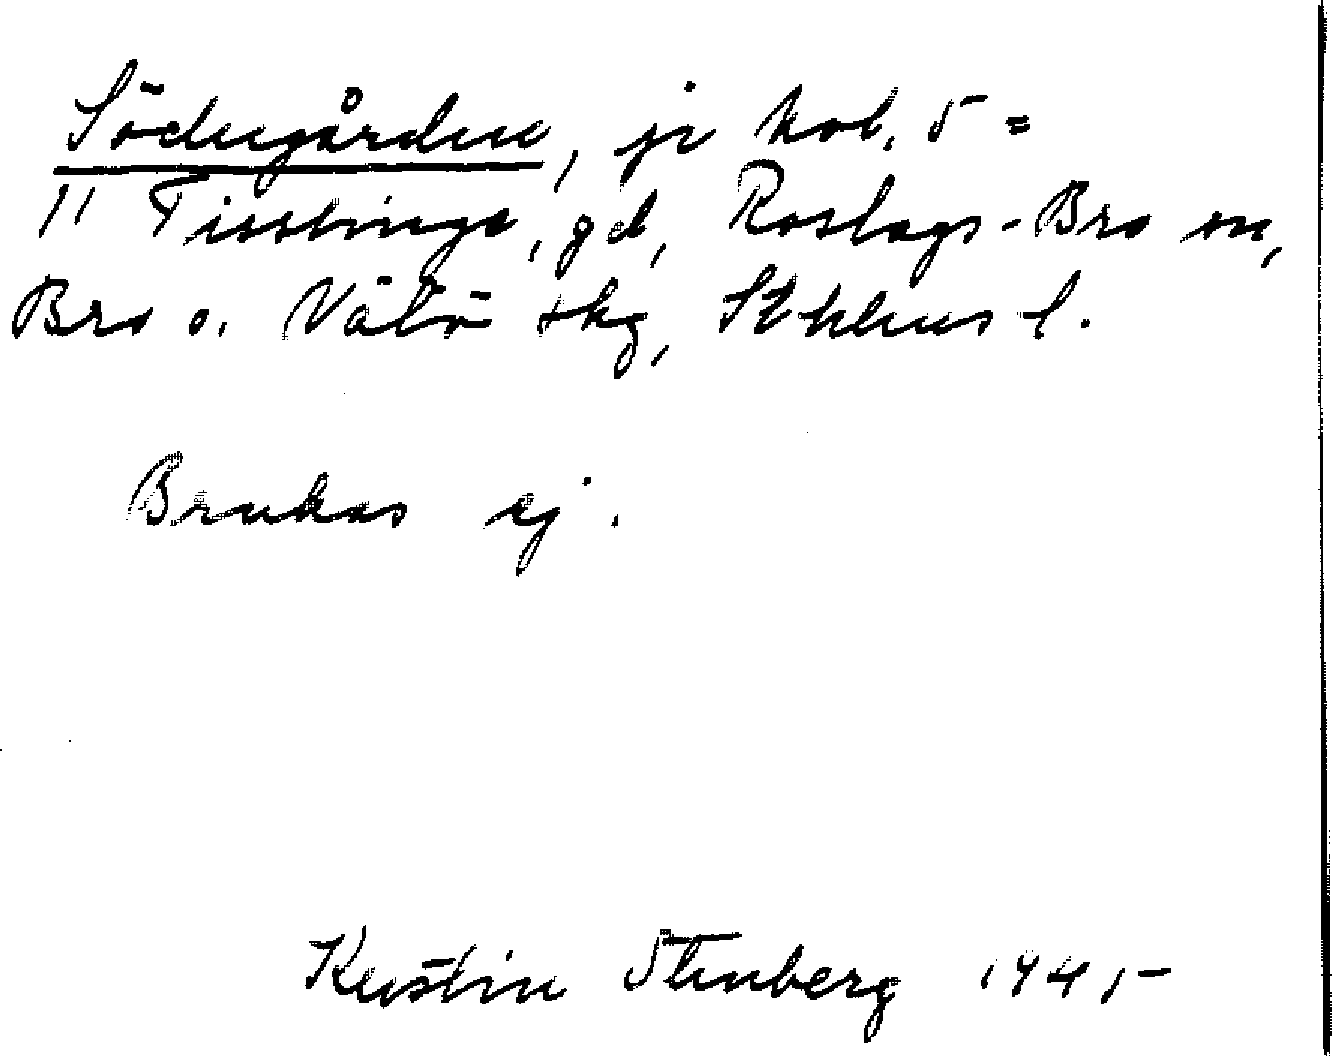 Södergården, jr kob. 5 =
11 Tisslinge, gd, Roslags-Bro sn,
Bro o. Vätö skg, Sthlms l.
Brukas ej.
Kerstin Stenberg 1945